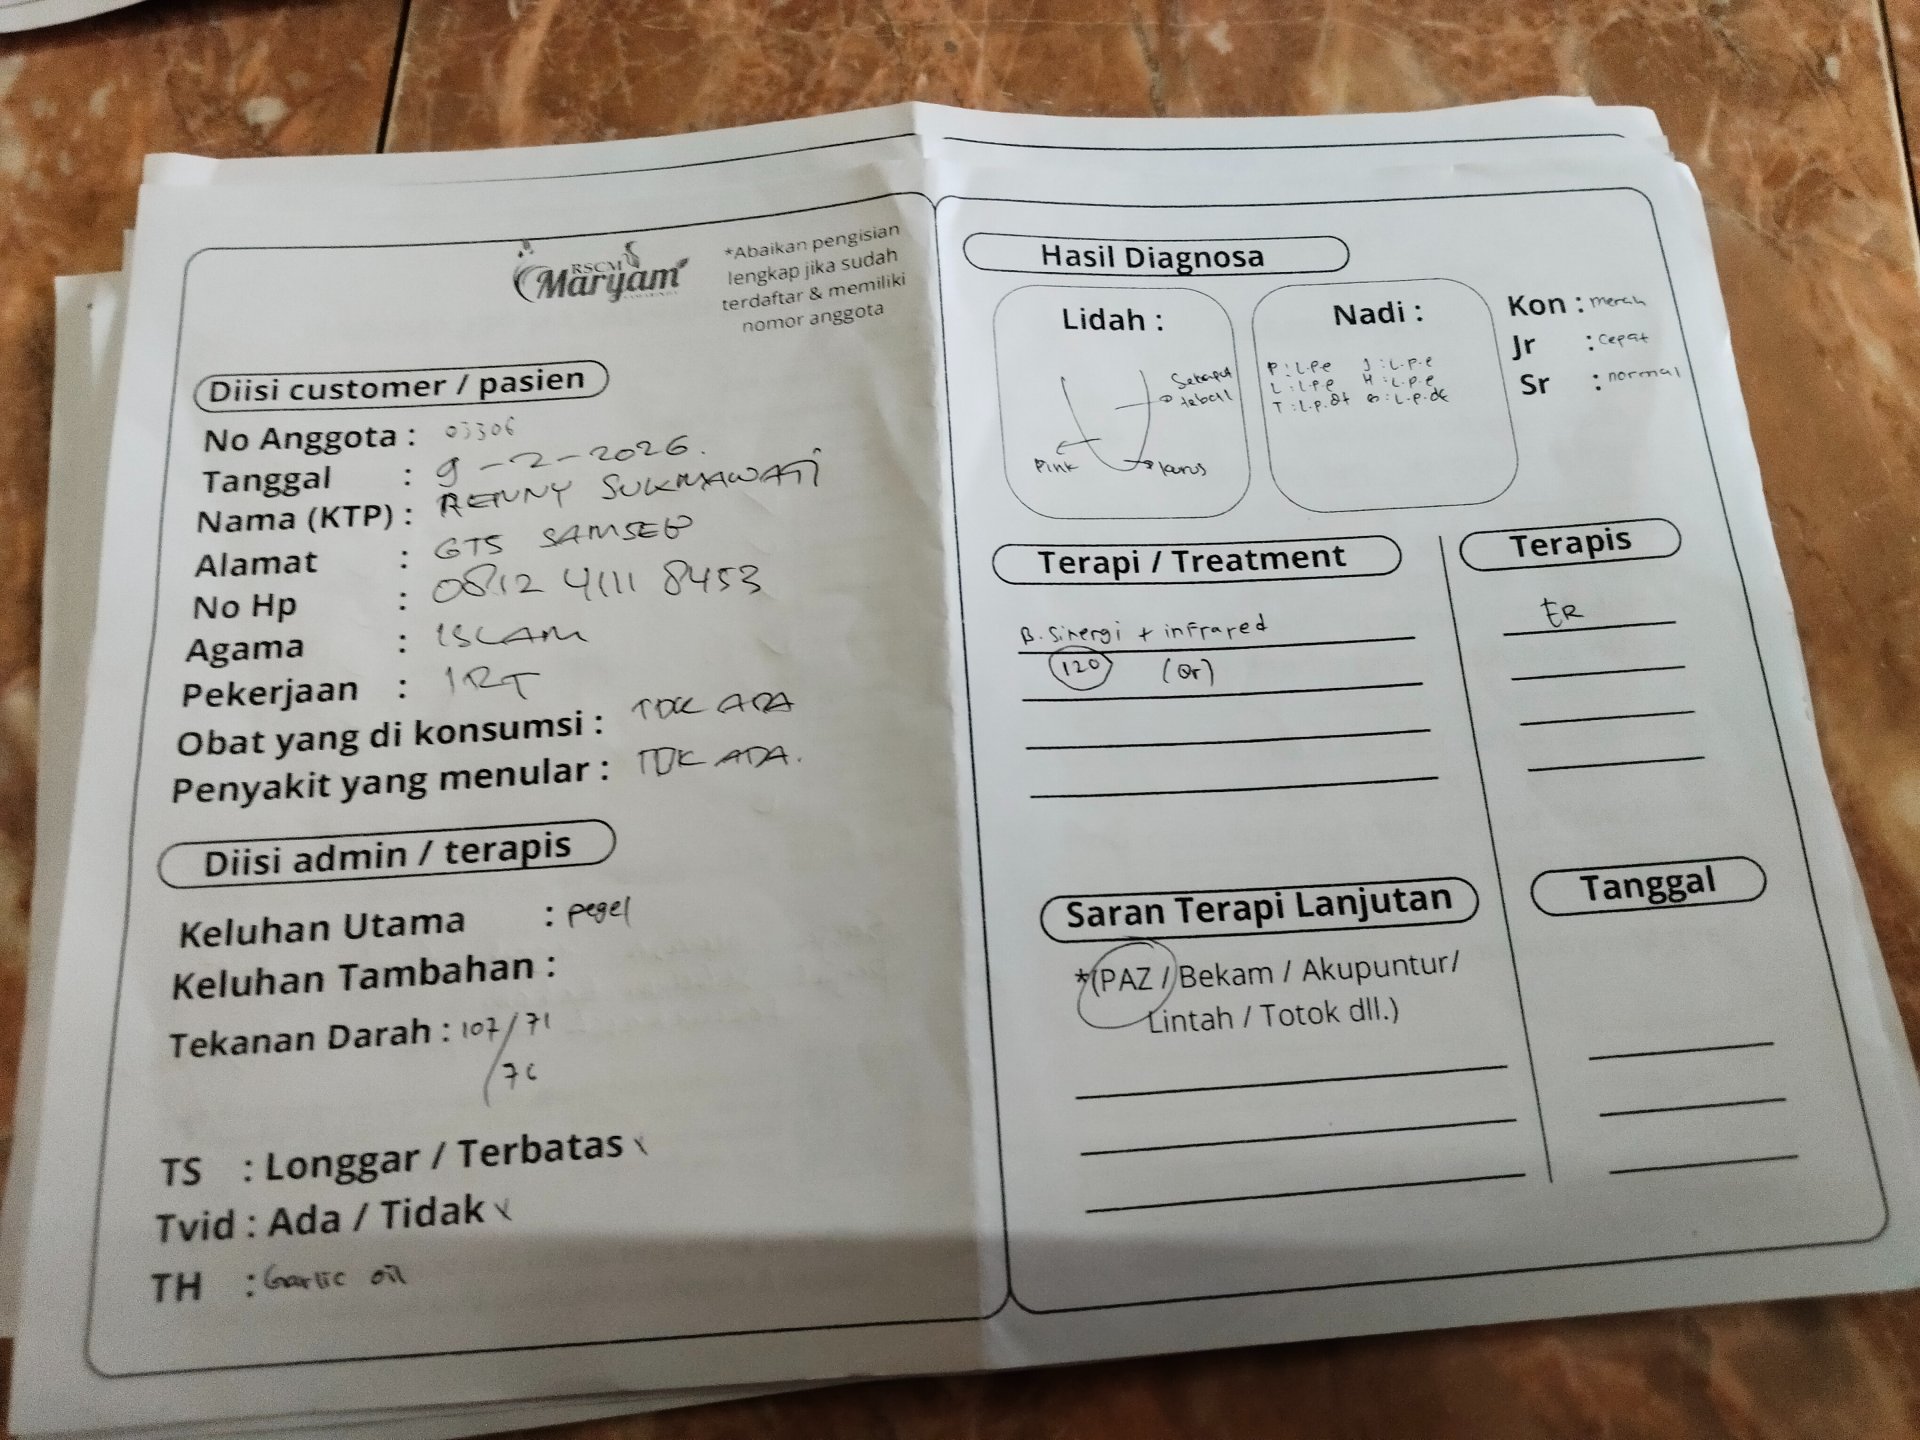 RSCM
Maryam
*Abaikan pengisian
lengkap jika sudah
terdaftar & memiliki
nomor anggota
Diisi customer / pasien
No Anggota : 03306
Tanggal : 9-2-2026.
Nama (KTP) : RENNY SUKMAWATI
Alamat : GTS SAMSEB
No Hp : 0812 4111 8453
Agama : ISLAM
Pekerjaan : IRT
Obat yang di konsumsi : TDK ADA
Penyakit yang menular : TDK ADA.
Diisi admin / terapis
Keluhan Utama : pegel
Keluhan Tambahan :
Tekanan Darah : 107/71
/76
TS : Longgar / Terbatas
Tvid : Ada / Tidak
TH : Garlic oil
Hasil Diagnosa
Lidah :
tebal
Pink
kurus
Nadi :
P : L.P.e J : L.P.e
L : L.P.e H : L.P.e
Kon : merah
Jr : cepat
Sr : normal
Terapi / Treatment
B. Sinergi + infrared
120 (Qr)
Terapis
ER
Saran Terapi Lanjutan
*(PAZ / Bekam / Akupuntur/
Lintah / Totok dll.)
Tanggal